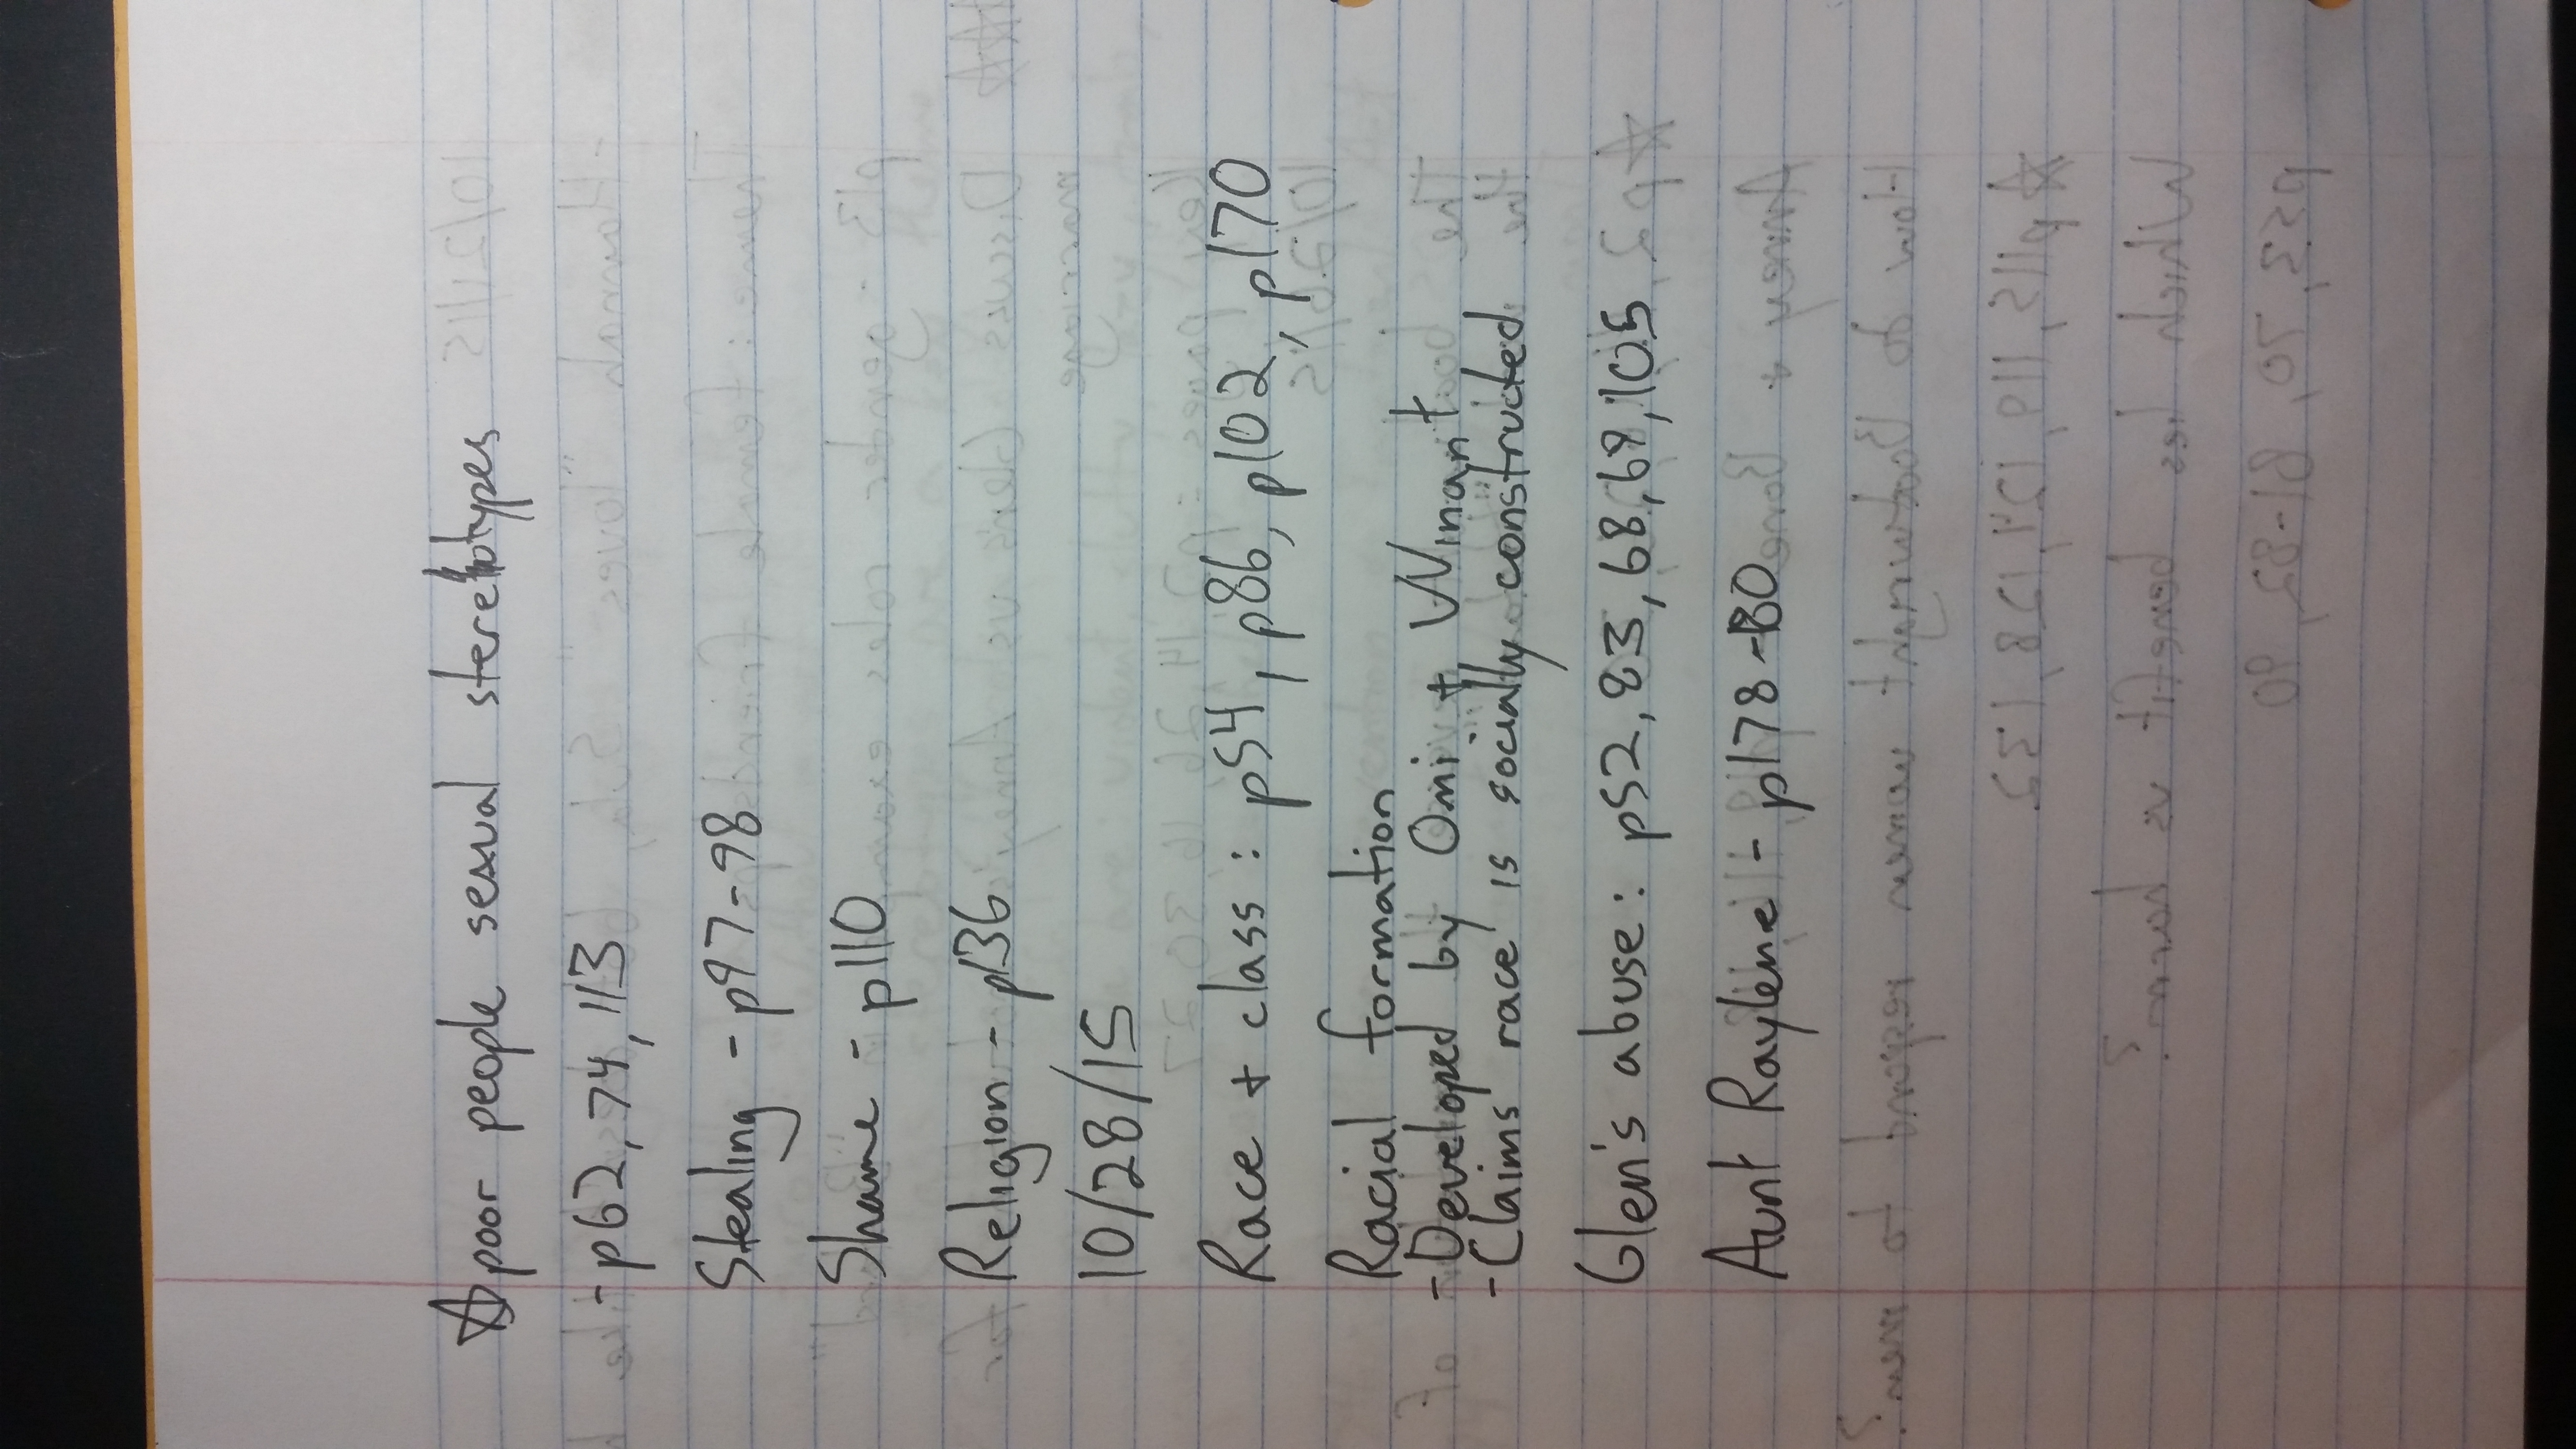 ☆ poor people sexual stereotypes
- p62, 74, 113
Stealing - p97-98
Shame - p110
Religion - p136
10/28/15
Race + class: p54, p86, p102, p170
Racial formation
- Developed by Omi + Winant
- Claims race is socially constructed
Glen's abuse: p52, 83, 68, 69, 105
Aunt Raylene - p178-80